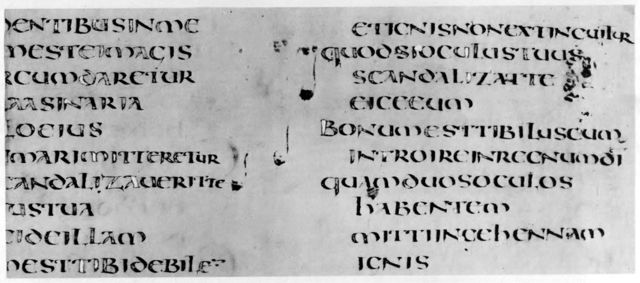 DENTIBUSINME
MESTEIMAGIS
RCUMDARETUR
AASINARIA
LOEIUS
MARIMITTERETUR
CANDALIZAUERITTE
USTUA
CIDEILLAM
MESTTIBIDEBILE
ETIGNISNONEXTINGUITUR
QUODSIOCULUSTUUS
SCANDALIZATTE
EICEEUM
BONUMESTTIBILUSCUM
INTROIREINREGNUMDI
QUAMDUOSOCULOS
HABENTEM
MITTIINGEHENNAM
IGNIS